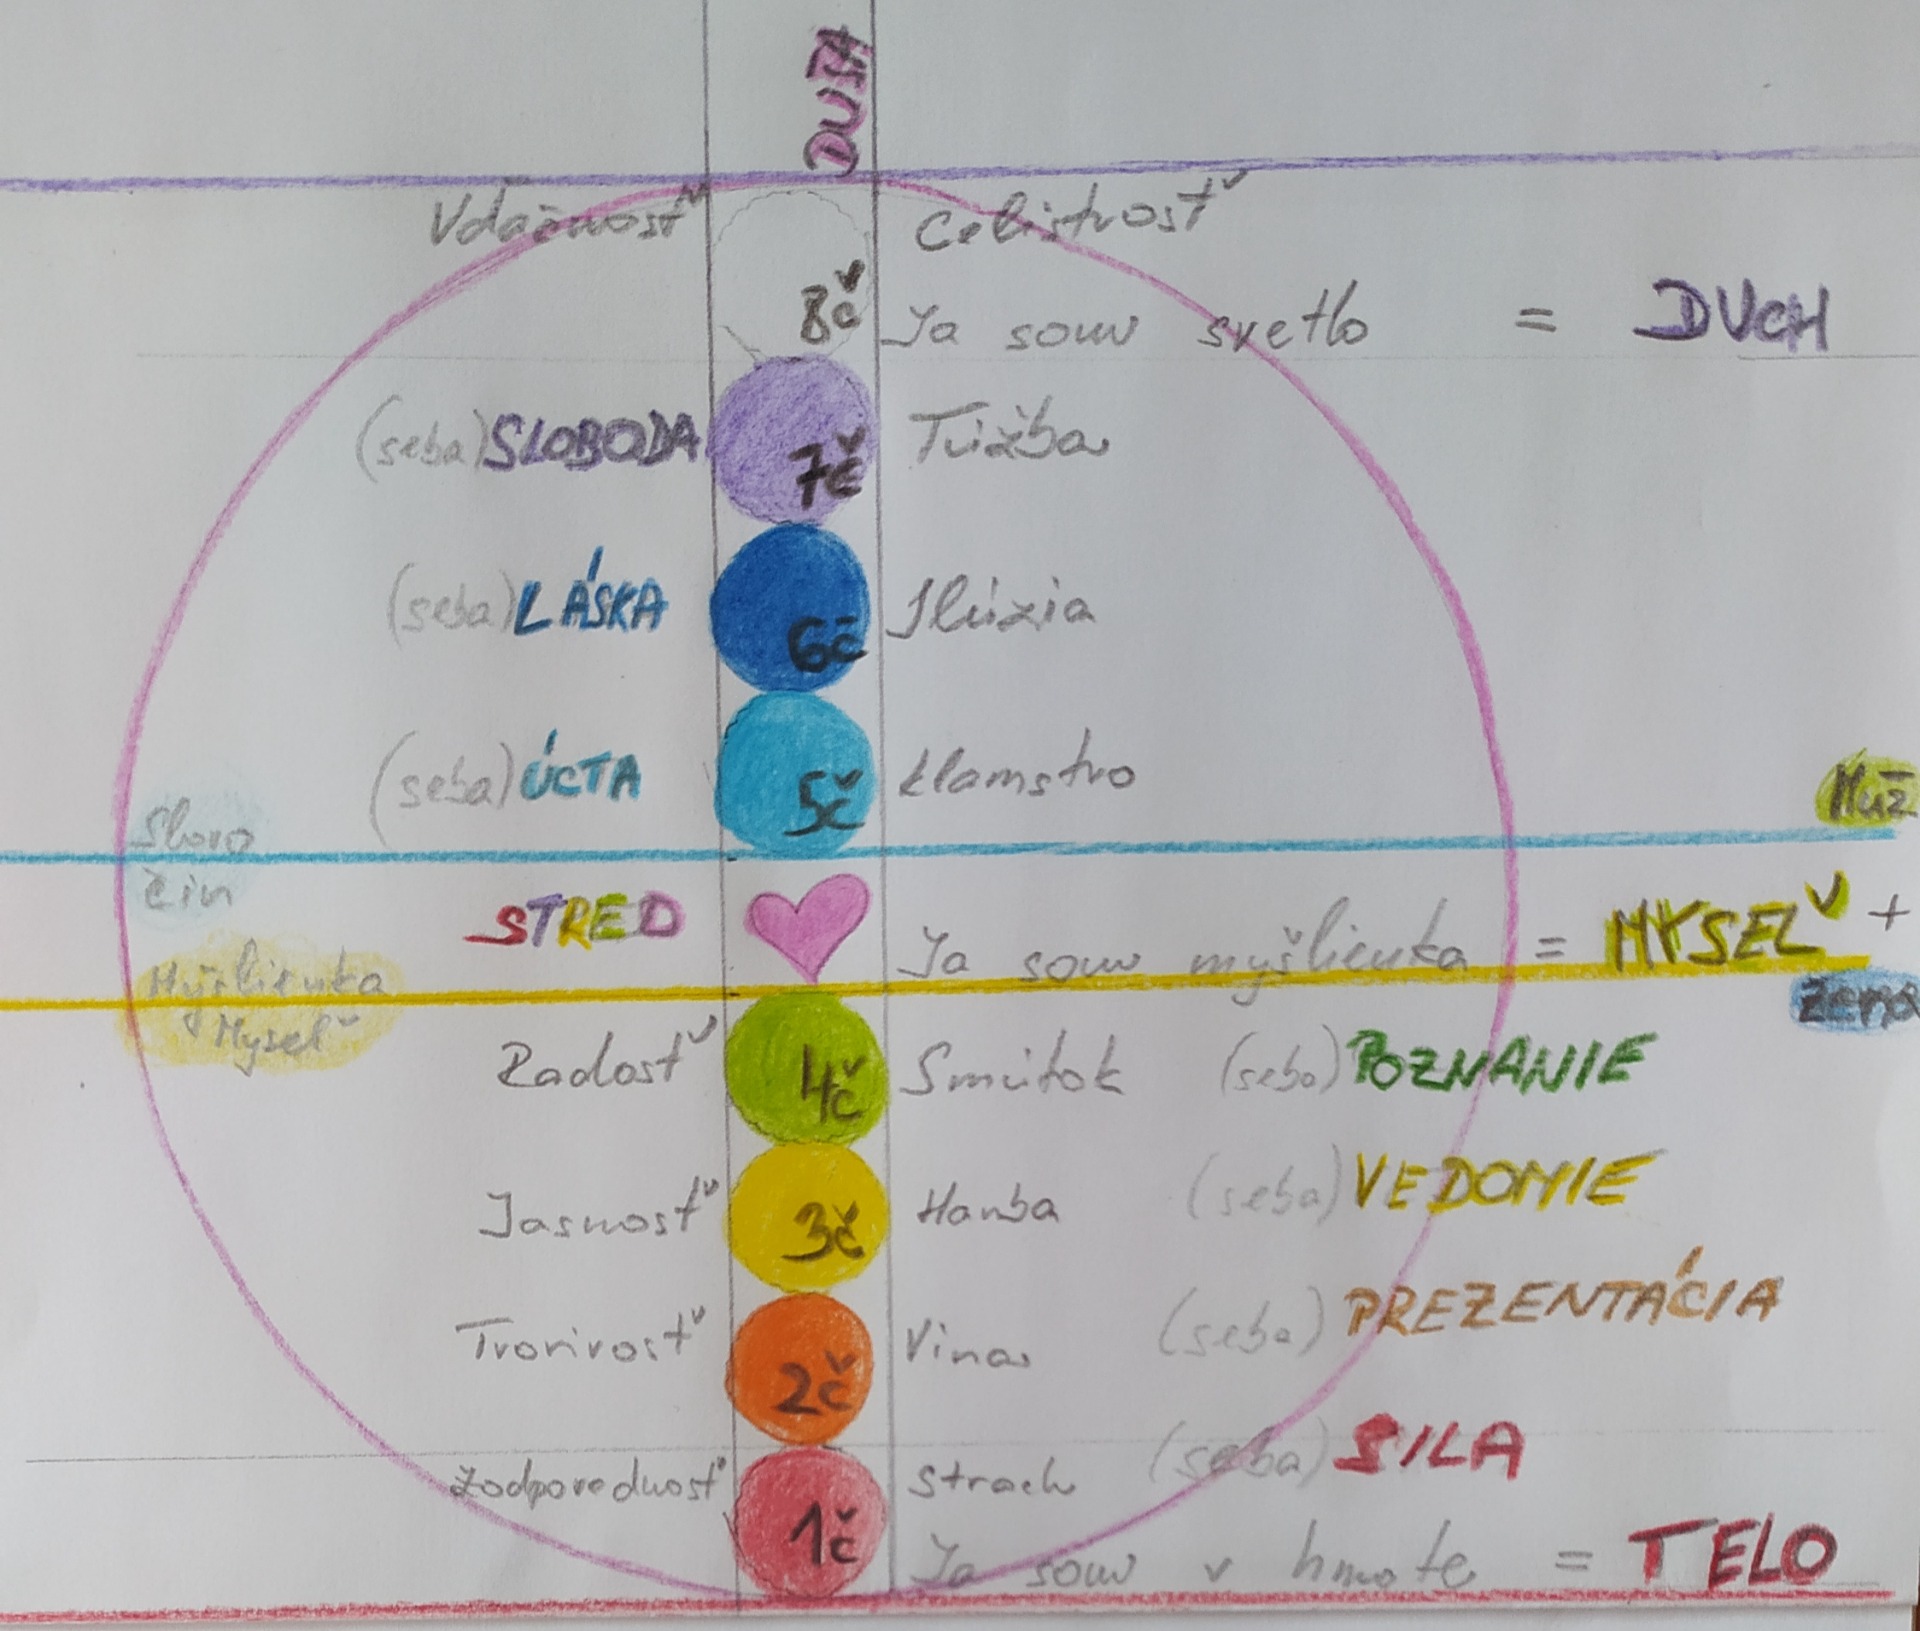 DUŠA
Vďačnosť Celistvosť
8č Ja som svetlo = DUCH
(seba)SLOBODA 7č Túžba
(seba)LÁSKA 6č Ilúzia
(seba)ÚCTA 5č Klamstvo
Muž
Slovo
čin
STRED Ja som myšlienka = MYSEĽ +
Myšlienka
Myseľ
žena
Radosť 4č Smútok (seba)POZNANIE
Jasnosť 3č Hanba (seba)VEDOMIE
Tvorivosť 2č Vina (seba)PREZENTÁCIA
Zodpovednosť 1č Strach (seba)SILA
Ja som v hmote = TELO